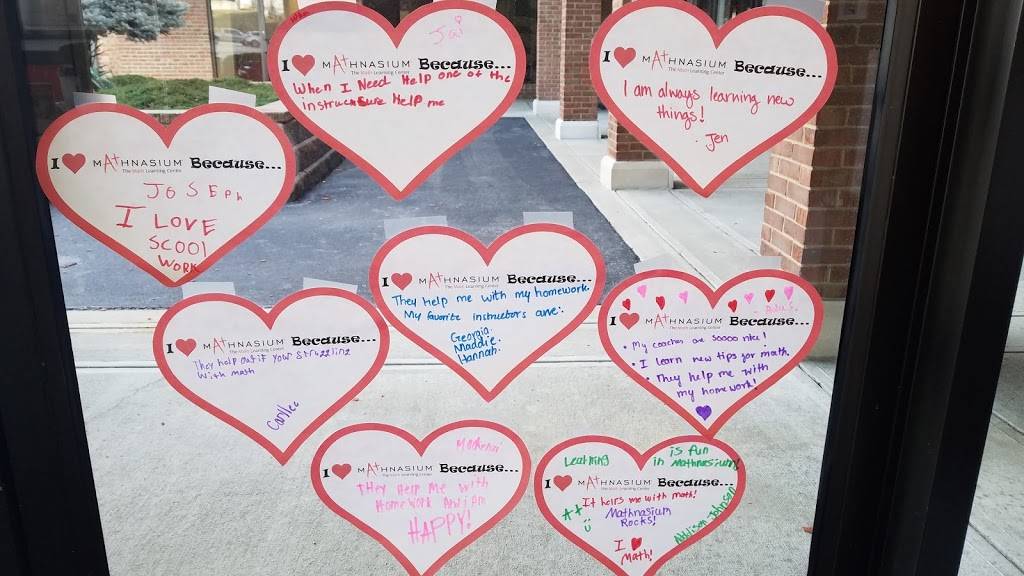 Jai
I ❤ MATHNASIUM Because...
The Math Learning Center
When I Need Help one of the
instrucksure Help me
I ❤ MATHNASIUM Because...
The Math Learning Center
I am always learning new
things!
- Jen
I ❤ MATHNASIUM Because...
The Math Learning Center
JOSEPh
I LOVE
SCOOl
WORK
I ❤ MATHNASIUM Because...
The Math Learning Center
They help me with my homework
My favorite instructors are:
Georgia.
Maddie.
Hannah.
I ❤ MATHNASIUM Because...
The Math Learning Center
• My coaches are soooo nice!
• I learn new tips for math
• They help me with
my homework!
I ❤ MATHNASIUM Because...
The Math Learning Center
They help out if your struzzling
with math
I ❤ MATHNASIUM Because...
The Math Learning Center
tHey Help Me with
Homework And i Am
HAPPY!
Learning is fun
in Mathnasium!
I ❤ MATHNASIUM Because...
The Math Learning Center
It helps me with math!
Mathnasium
Rocks!
I ❤
Math!
Addison Johnson